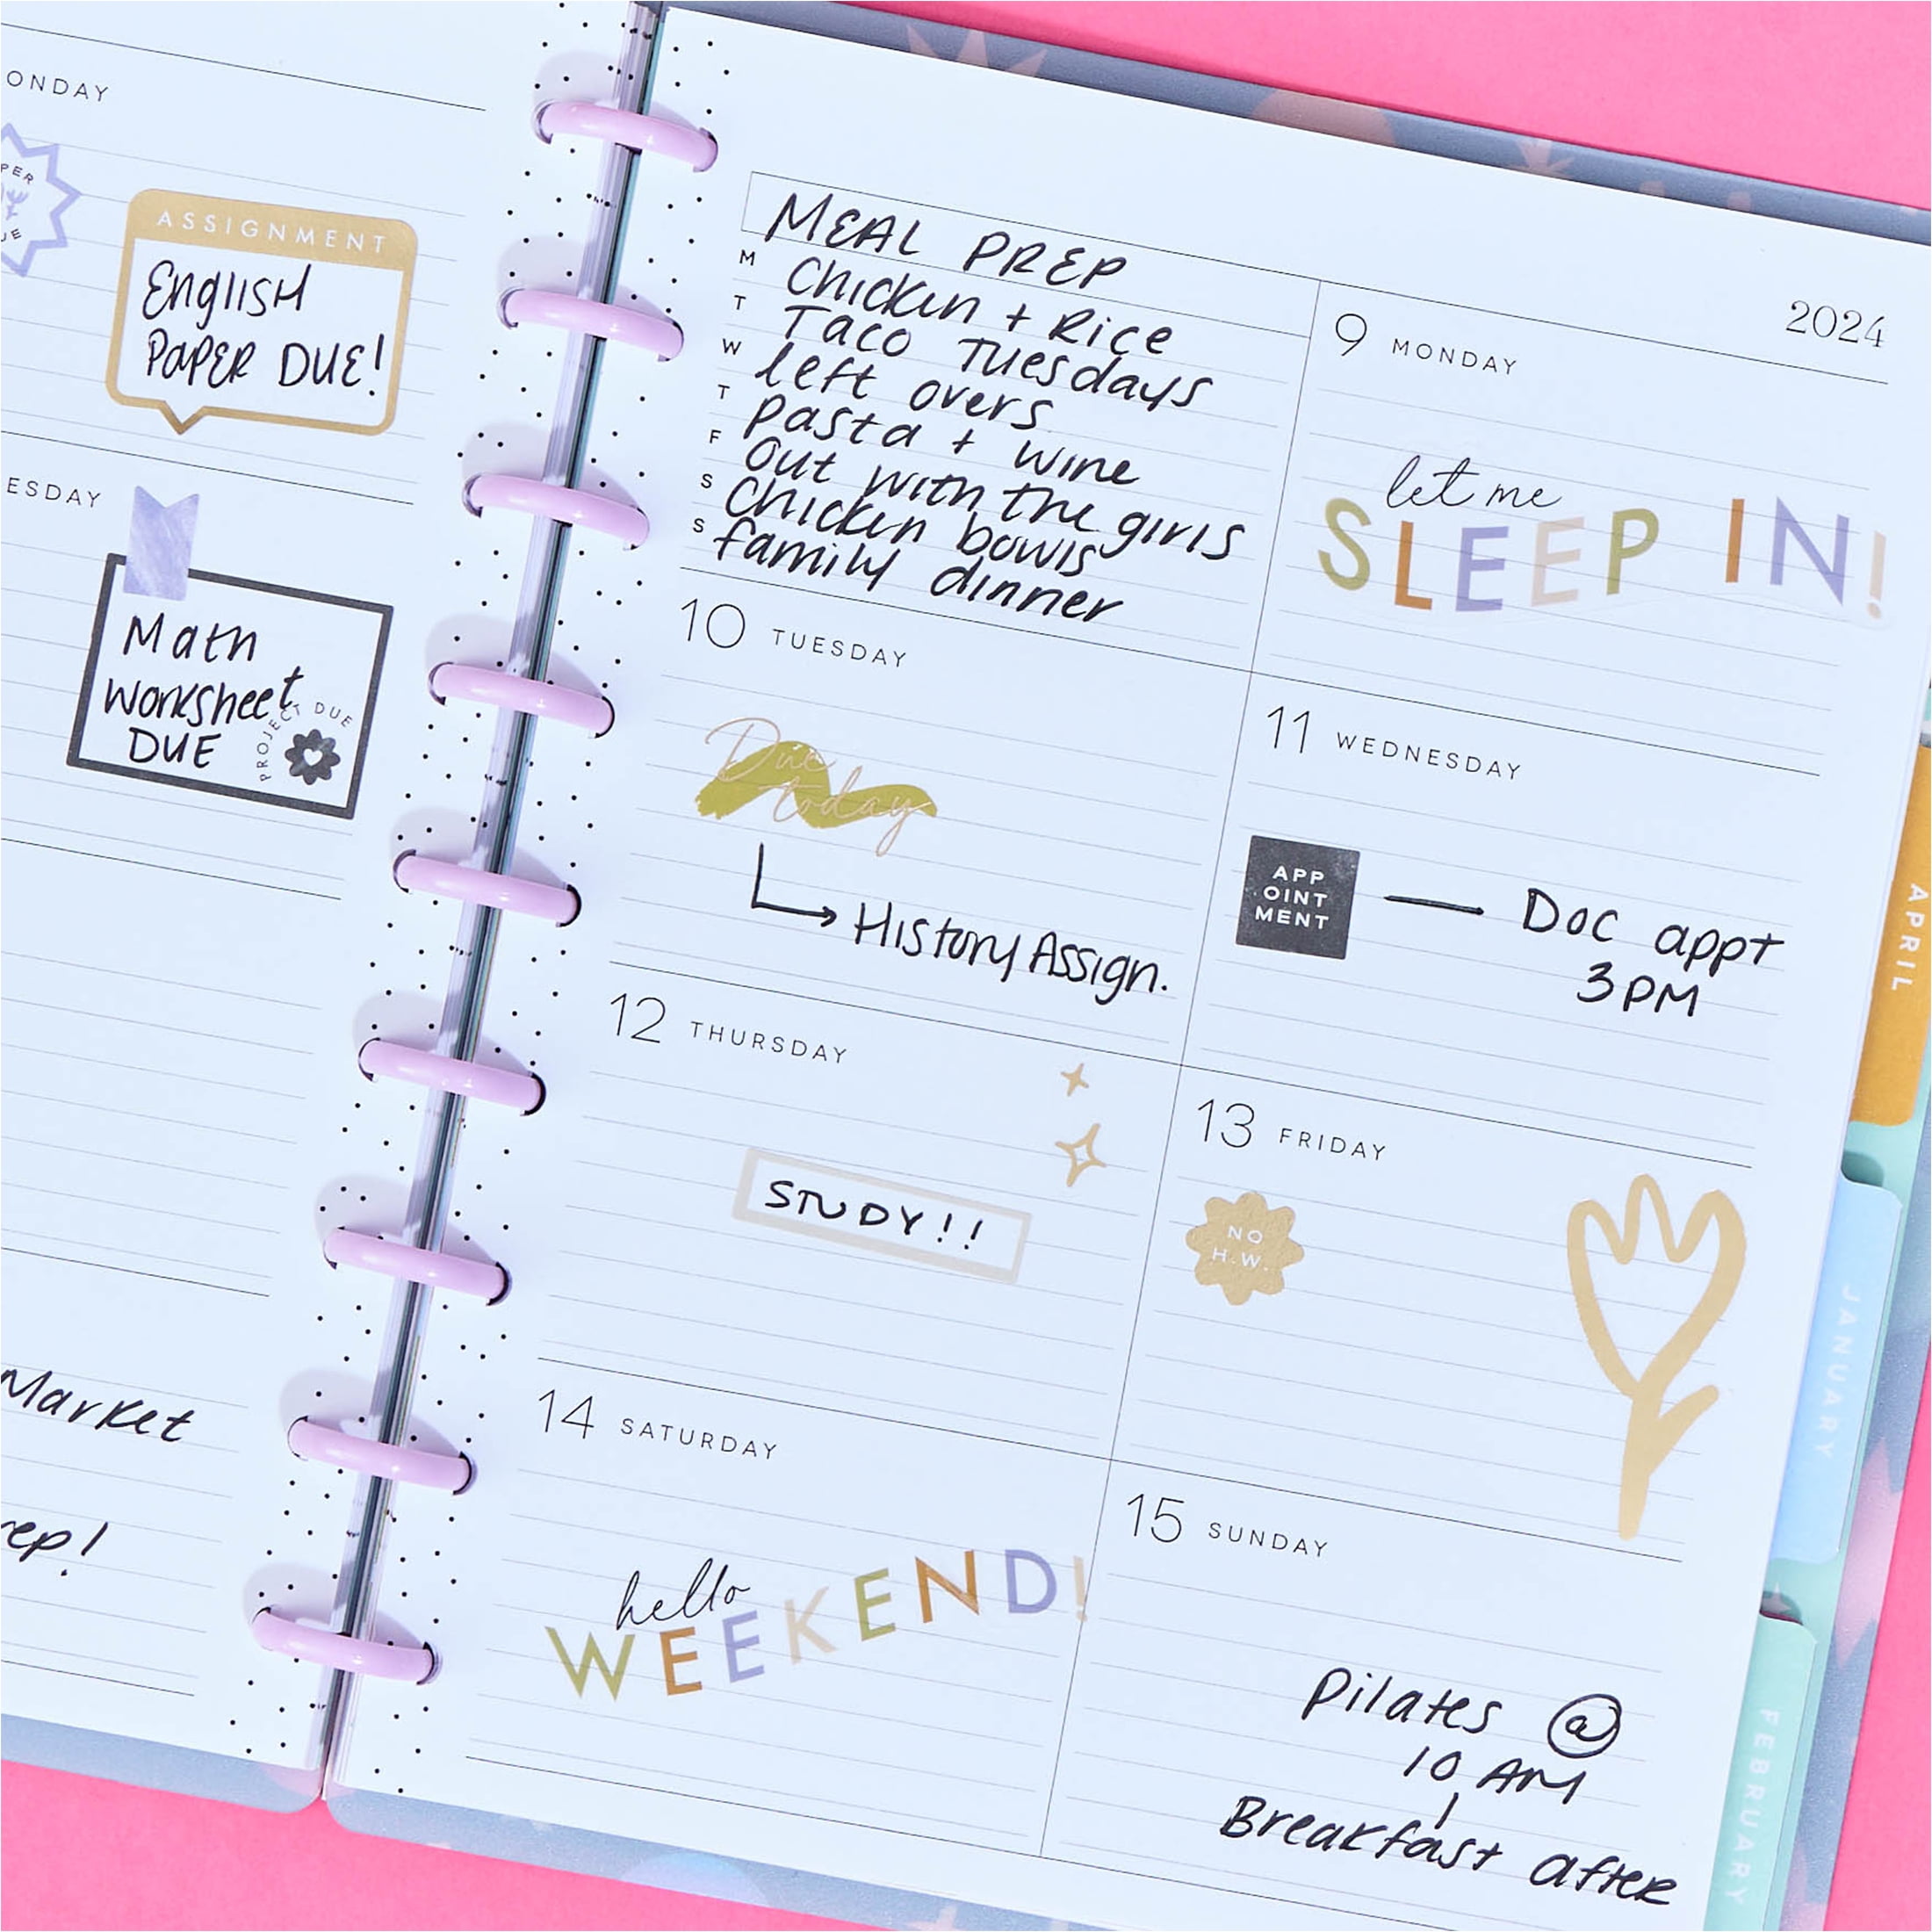 ONDAY
PER
UE
ASSIGNMENT
English
Paper Due!
ESDAY
Math
Worksheet
Due
PROJECT DUE
Market
rep!
MEAL PREP
M Chicken + Rice
T Taco Tuesdays
W left overs
T pasta + wine
F Out with the girls
S Chicken bowls
S family dinner
2024
9 MONDAY
let me
SLEEP IN!
10 TUESDAY
Due
today
History Assign.
11 WEDNESDAY
APP
OINT
MENT
Doc appt
3PM
12 THURSDAY
STUDY!!
13 FRIDAY
NO
H.W.
14 SATURDAY
hello
WEEKEND!
15 SUNDAY
Pilates @
10 AM
Breakfast after
APRIL
JANUARY
FEBRUARY